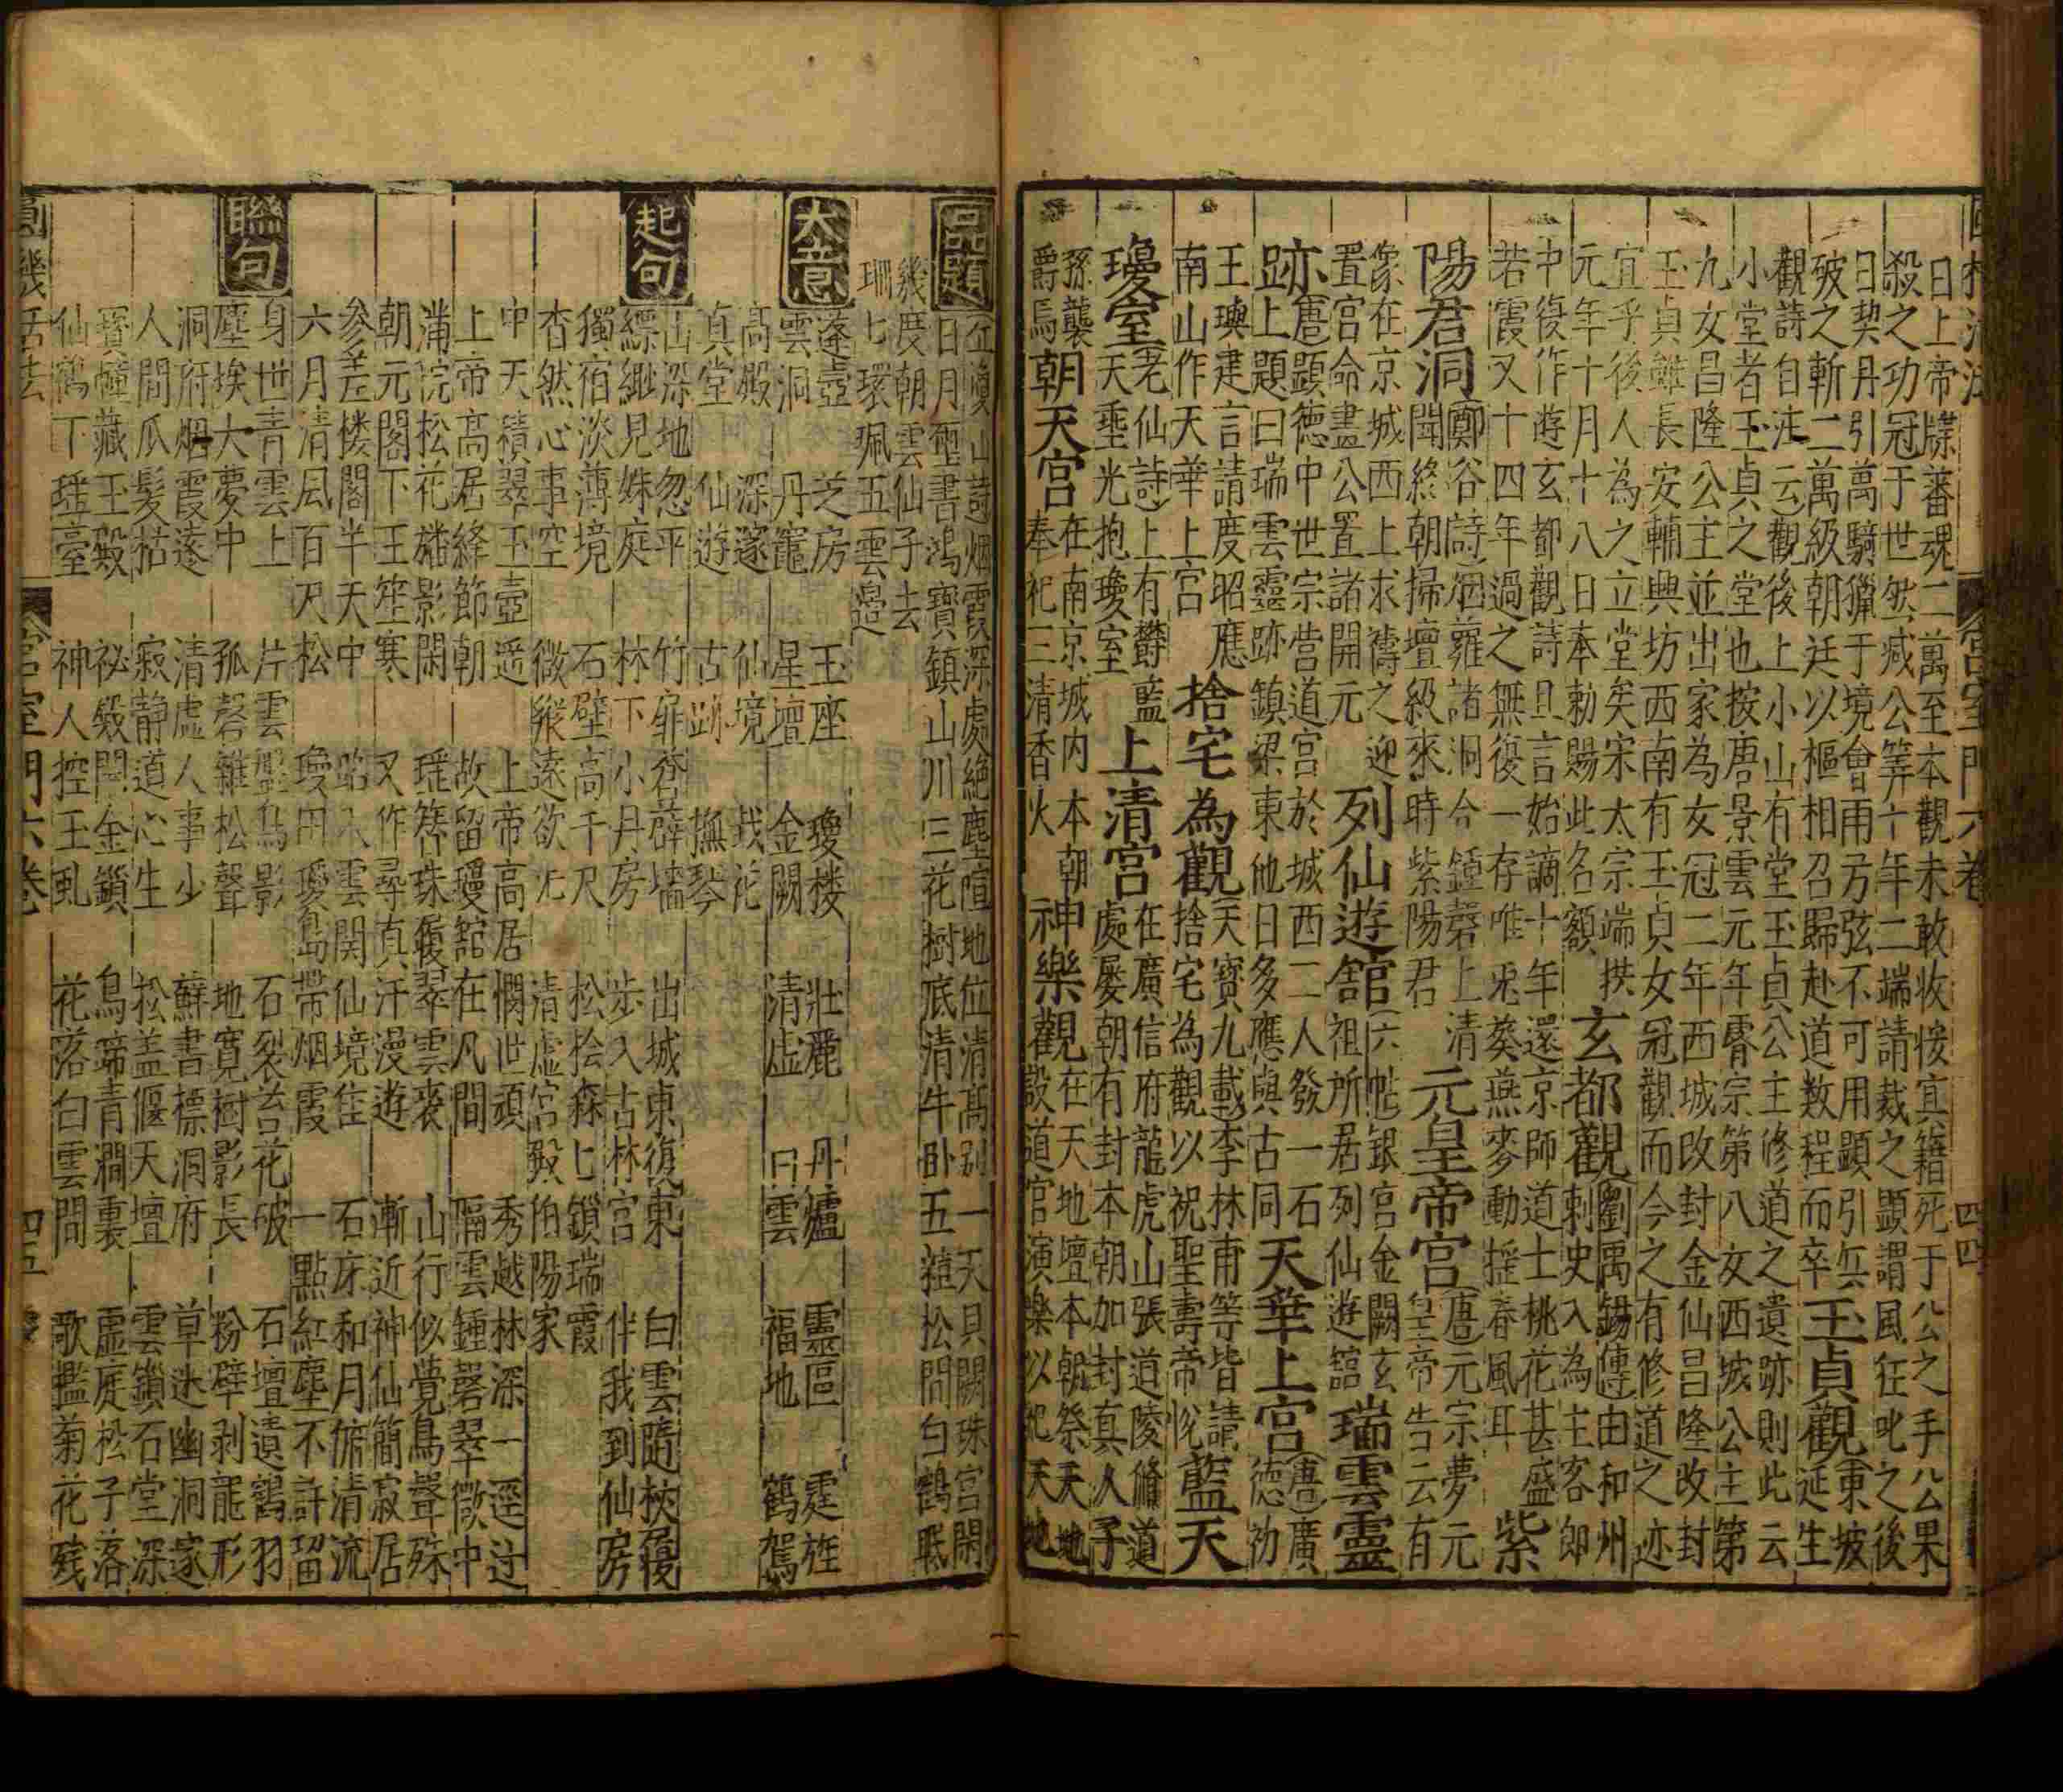 日上帝牒蕃魂二萬至本觀未敢收係寘籍死于公之手公果
殺之功冠于世然減公筭十年二端請裁之顕謂風狂叱之後
日契丹引萬騎獵于境會雨方弦不可用顕引兵
破之斬二萬級朝廷以樞相召歸赴道数程而卒
玉貞觀
東坡
延生
觀詩自注云觀後上小山有堂玉貞公主修道之遺跡則此云
小堂者玉貞之堂也按唐景雲元年睿宗第八女西城公主第
九女昌隆公主並出家為女冠二年西城改封金仙昌隆改封
玉貞雖長安輔興坊西南有玉貞女冠觀而今之有修道之迹
宜乎後人為之立堂矣宋太宗端拱
元年十月十八日本勅賜此名額
玄都觀
劉禹錫傳由和州
刺史入為主客郎
中復作遊玄都觀詩且言始謫十年還京師道士桃花甚盛
若霞又十四年過之無復一存唯兎葵燕麥動揺春風耳
紫
陽君洞
鄭谷詩烟蘿諸洞今鍾磬上清
聞終朝掃壇級來時紫陽君
元皇帝宮
唐元宗夢元
皇帝告云有
像在京城西上求禱之迎
置宮命盡公置諸開元
列仙遊舘
六帖銀宮金闕玄
祖所居列仙遊舘
瑞雲靈
跡
唐顕德中世宗営道宮於城西二人發一石
上題曰瑞雲靈跡鎮梁東他日多應與古同
天華上宮
唐廣
德初
王璵建言請度昭應
南山作天華上宮
捨宅為觀
天寶九載李林甫等皆請
捨宅為觀以祝聖壽帝悅
藍天
瓊室
老仙詩上有欝藍
天垂光抱瓊室
上清宮
在廣信府龍虎山張道陵脩道
處屡朝有封本朝加封真人子
孫襲
爵焉
朝天宮
在南京城内本朝
奉祀三清香火
神樂觀
在天地壇本朝祭天地
設道官演樂以祀天地
宮室門六卷
四四
品題
烟霞深處絶塵喧地位清高别一天貝闕珠宮閑
日月聖書鴻寶鎮山川三花樹底清牛卧五松間白鶴眠
幾度朝雲仙子去
珊七環珮五雲邉
大意
蓬壺 芝房 玉座 瓊楼 壮麗 丹爐 靈區 霓旌
雲洞 丹竈 星壇 金闕 清虚 白雲 福地 鶴駕
高殿 深邃 仙境 栽花
真堂 仙遊 古跡 撫琴
起句
山深地忽平 竹扉香薜墻 出城東復東 白雲隨杖屨
縹緲見姝庭 林下小丹房 步入古林宮 伴我到仙房
獨宿淡薄境 石壁高千尺 松桧森七鎖瑞霞
杳然心事空 微縱遠欲沈 清虚宮殿伯陽家
中天積翠玉壺遥 上帝高居憫世頑 秀越林深一逕迂
上帝高居絳節朝 故留瓊舘在凡間 隔雲鍾磬翠微中
満院松花旛影閑 瑶簪珠履翠雲裘 山行似覺鳥聲殊
朝元閣下玉笙寒 又作尋真汗漫遊 漸近神仙簡寂居
参差楼閣半天中 踏入雲関仙境佳 石床和月俯清流
六月清風百尺松 瓊田瓊島帶烟霞 一點紅塵不許留
聯句
身世青雲上 片雲盤鳥影 石裂苔花破 石壇遺鶴羽
塵埃大夢中 孤磬雜松聲 地寛樹影長 粉壁剥龍形
洞府烟霞遠 清虚人事少 蘚書標洞府 草迷幽洞家
人間瓜髮枯 寂静道心生 松盖偃天壇 雲鎖石堂深
寶幢藏玉殿 祕殿開金鎖 鳥啼青澗裏 虚庭松子落
仙鶴下瑶臺 神人控玉虱 花落白雲間 歌檻菊花残
圓機活法
宮室門六卷
四五